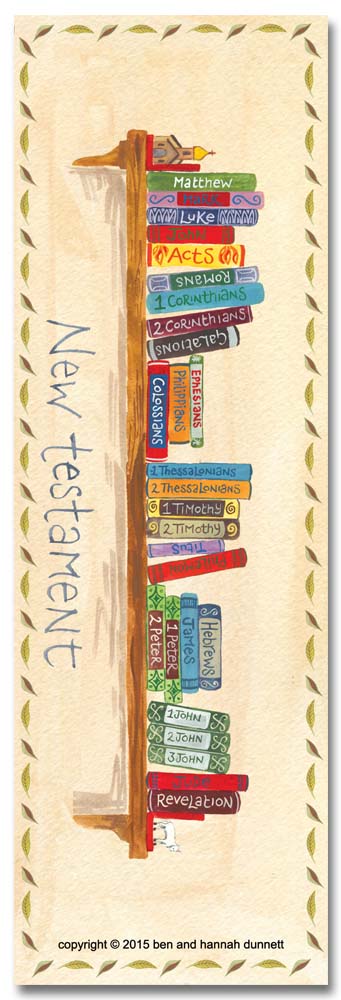 Matthew
Mark
Luke
JOHN
Acts
Romans
1 CORINTHIANS
2 CORINTHIANS
GALATIONS
EPHESIANS
PHILIPPIANS
COLOSSIANS
1 Thessalonians
2 Thessalonians
1 Timothy
2 Timothy
Titus
Philemon
Hebrews
James
1 Peter
2 Peter
1 JOHN
2 JOHN
3 JOHN
Jude
Revelation
New testament
copyright © 2015 ben and hannah dunnett